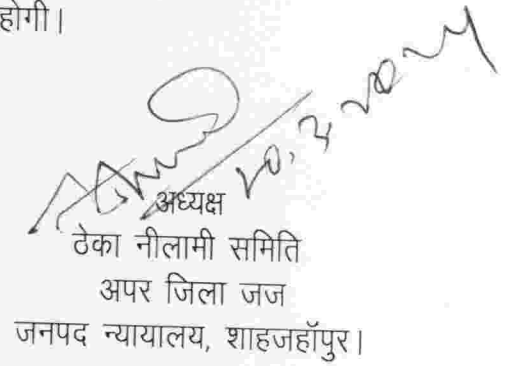 होगी।
अध्यक्ष
ठेका नीलामी समिति
अपर जिला जज
जनपद न्यायालय, शाहजहॉपुर।